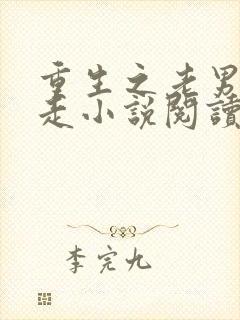 重生之老男
走小說閱讀
李完九